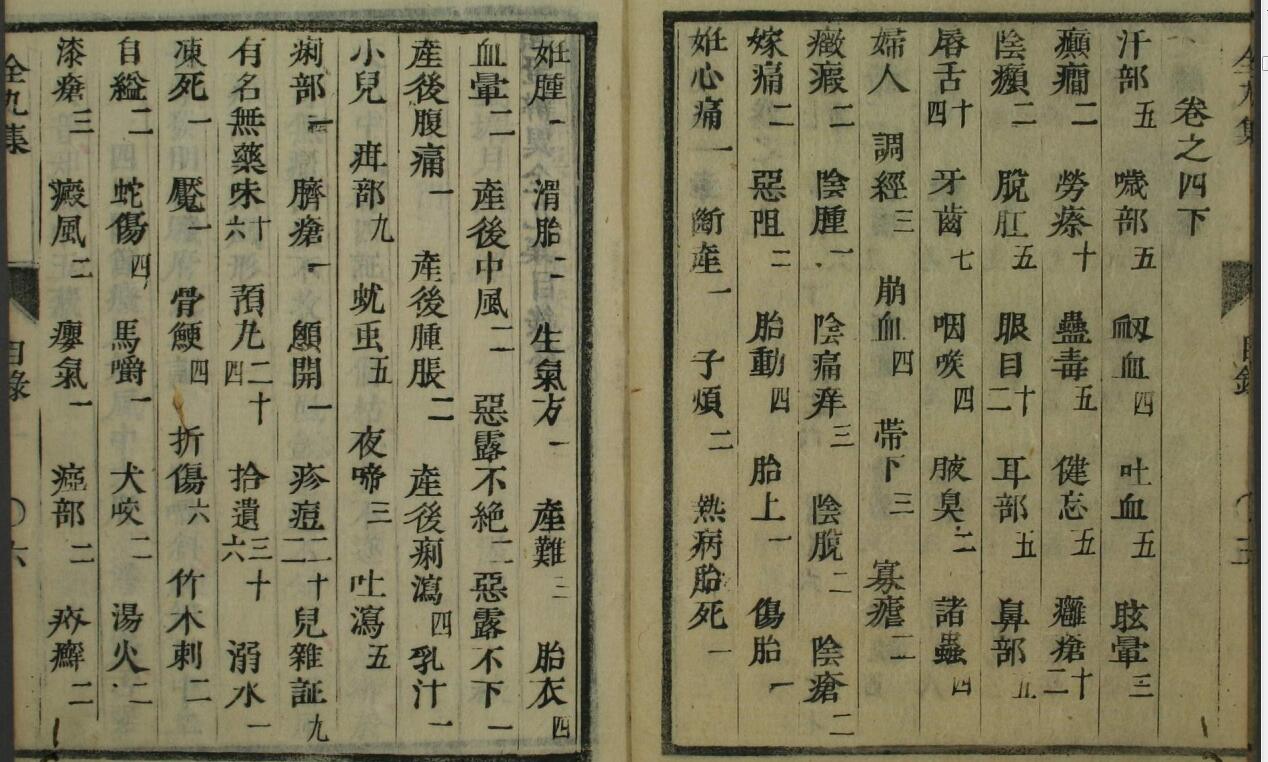 卷之四下
汗部五 噦部五 衂血四 吐血五 眩暈三
癲癎二 勞瘵十 蠱毒五 健忘五 癰瘡十二
陰㿗二 脫肛五 眼目十二 耳部五 鼻部五
唇舌十四 牙齒七 咽喉四 腋臭二 諸蟲四
婦人 調經三 崩血四 帶下三 寡瘧二
癥瘕二 陰腫一 陰痛痒三 陰脫二 陰瘡二
嫁痛二 惡阻二 胎動四 胎上一 傷胎一
妊心痛一 斷産一 子煩二 熱病胎死一
目錄
妊腫一 滑胎二 生氣方一 產難三 胎衣四
血暈二 產後中風二 惡露不絶二 惡露不下一
產後腹痛一 產後腫脹二 產後痢瀉四 乳汁一
小兒 疳部九 蚘虫五 夜啼三 吐瀉五
痢部 臍瘡一 顖開一 疹痘二十二 兒雜証九
有名無藥味十六 預九二十四 拾遺三十六 溺水一
凍死一 魘一 骨鯁四 折傷六 竹木刺二
自縊二 蛇傷四 馬嚼一 犬咬二 湯火二
漆瘡三 癜風二 癭氣一 瘂部二 疥癬二
全九集
目錄
〇六